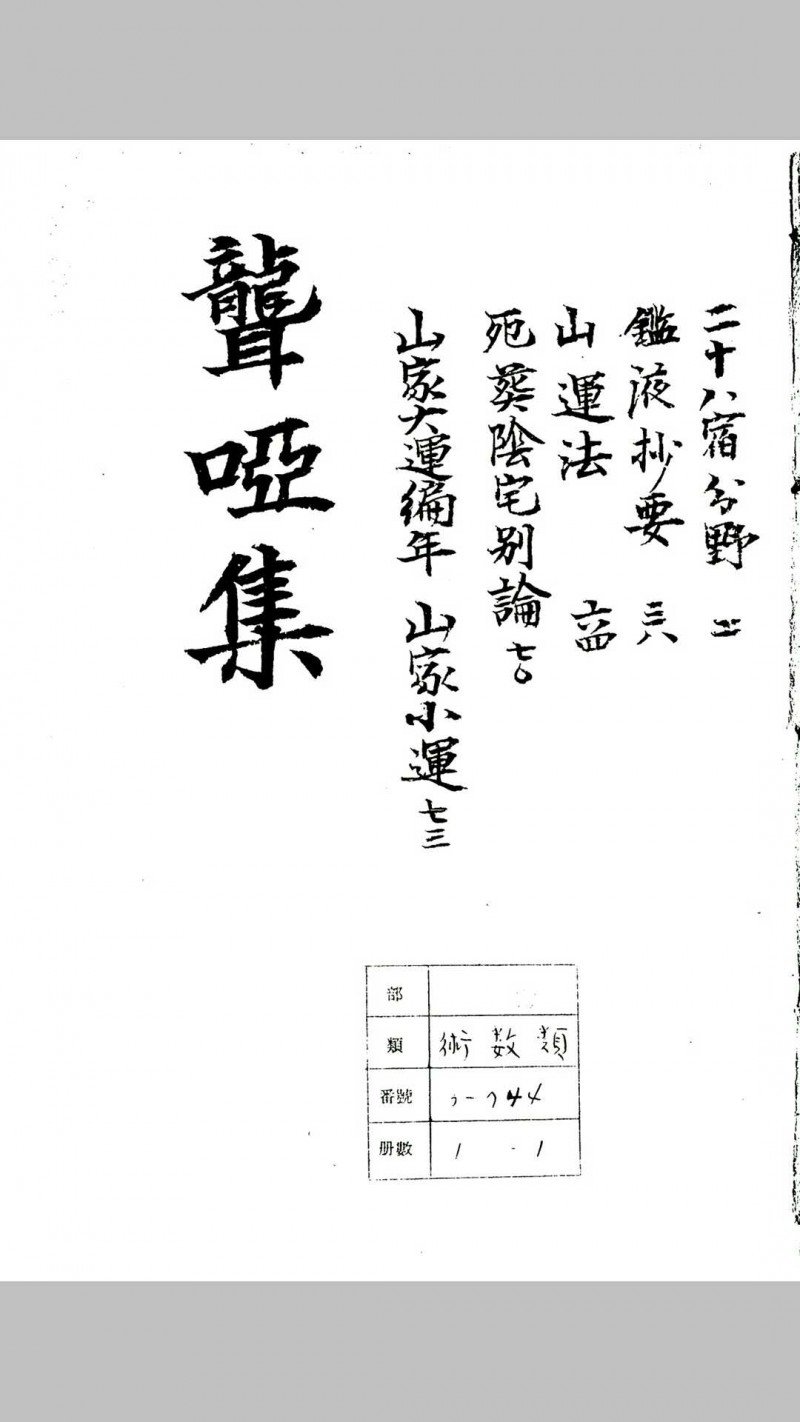 二十八宿分野 二
鑑液抄要 三八
山運法 六四
死葬陰宅別論 七〇
山家大運編年 山家小運 七三
聾啞集
部
類 術数類
番號 744
册數 1 - 1